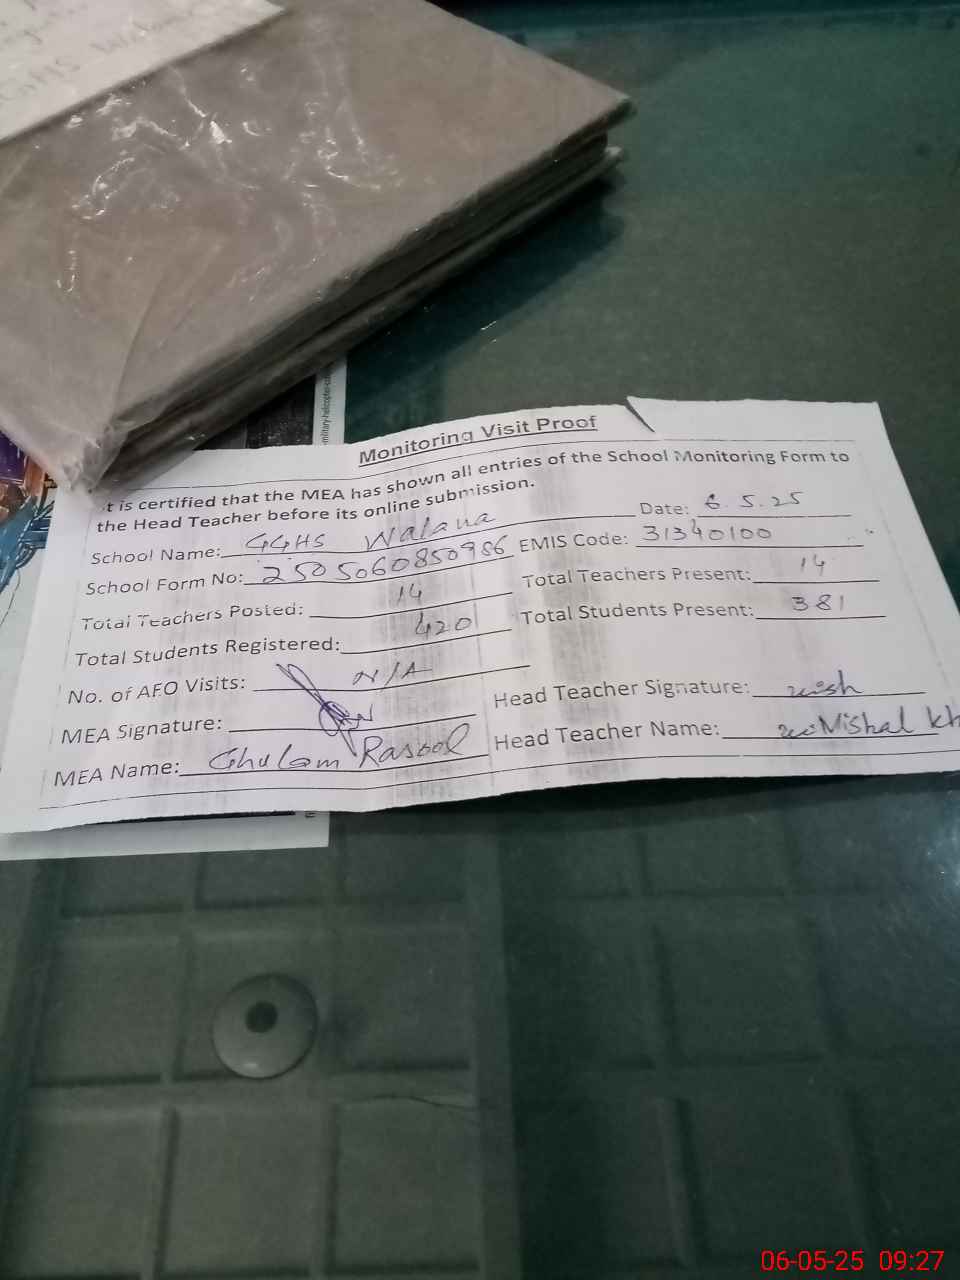 Monitoring Visit Proof
t is certified that the MEA has shown all entries of the School Monitoring Form to
the Head Teacher before its online submission.
School Name: GGHS Walana Date: 6.5.25
School Form No: 2505060850986 EMIS Code: 31340100
Total Teachers Posted: 14 Total Teachers Present: 14
Total Students Registered: 420 Total Students Present: 381
No. of AEO Visits: N/A
MEA Signature: Head Teacher Signature:
MEA Name: Ghulam Rasool Head Teacher Name: Mishal kh
military-helicopter
06-05-25 09:27